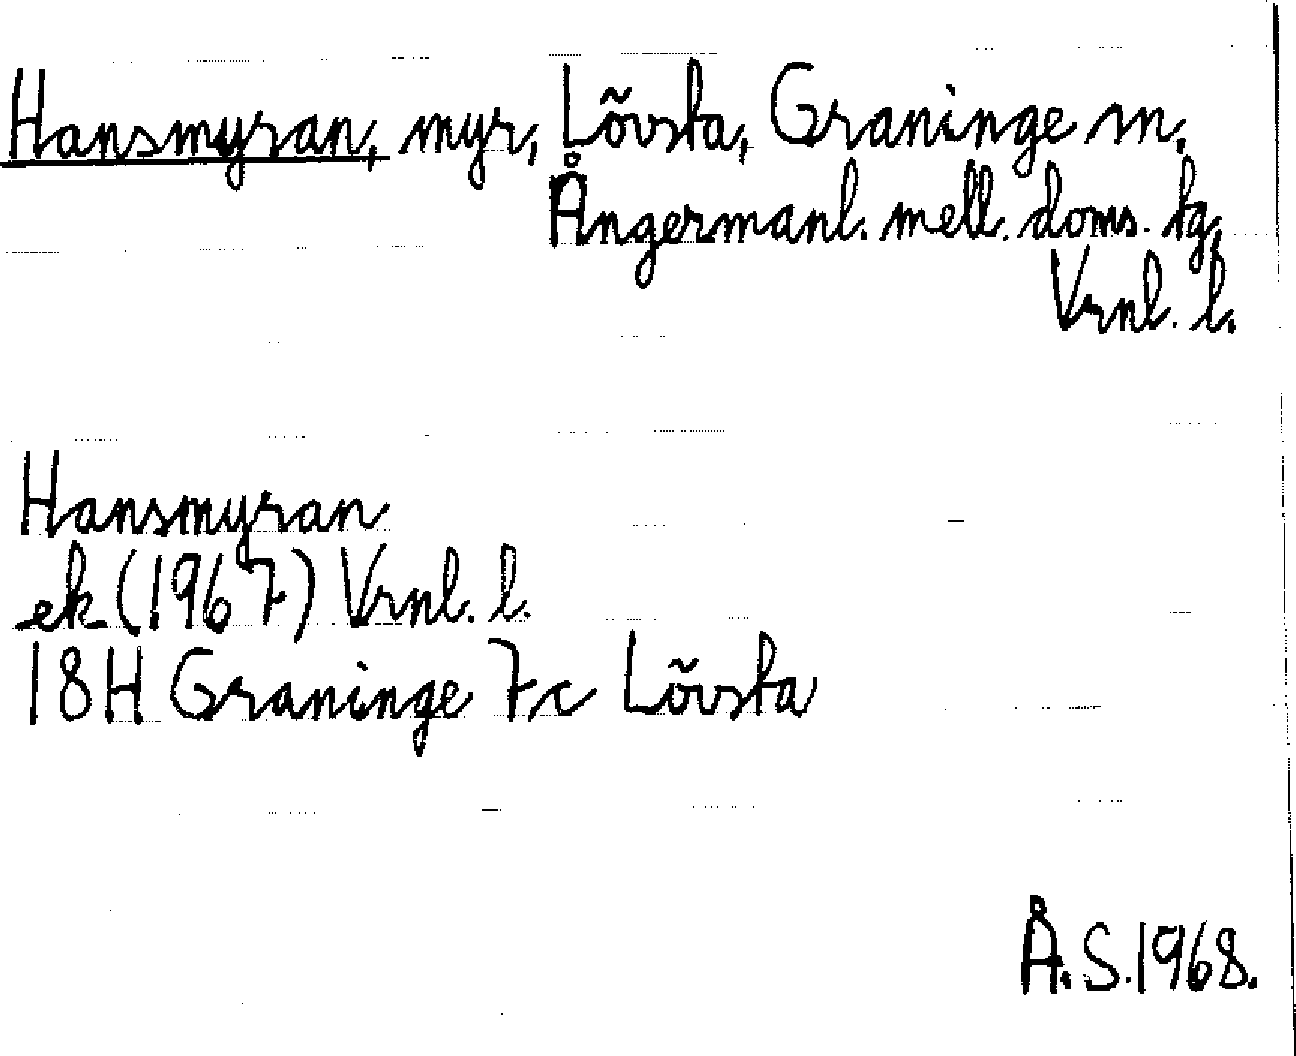 Hansmyran, myr, Lövsta, Graninge sn.
Ångermanl. mell. doms. tg.
Vrnl. l.
Hansmyran
ek (1967) Vrnl. l.
18H Graninge 7c Lövsta
Å.S.1968.